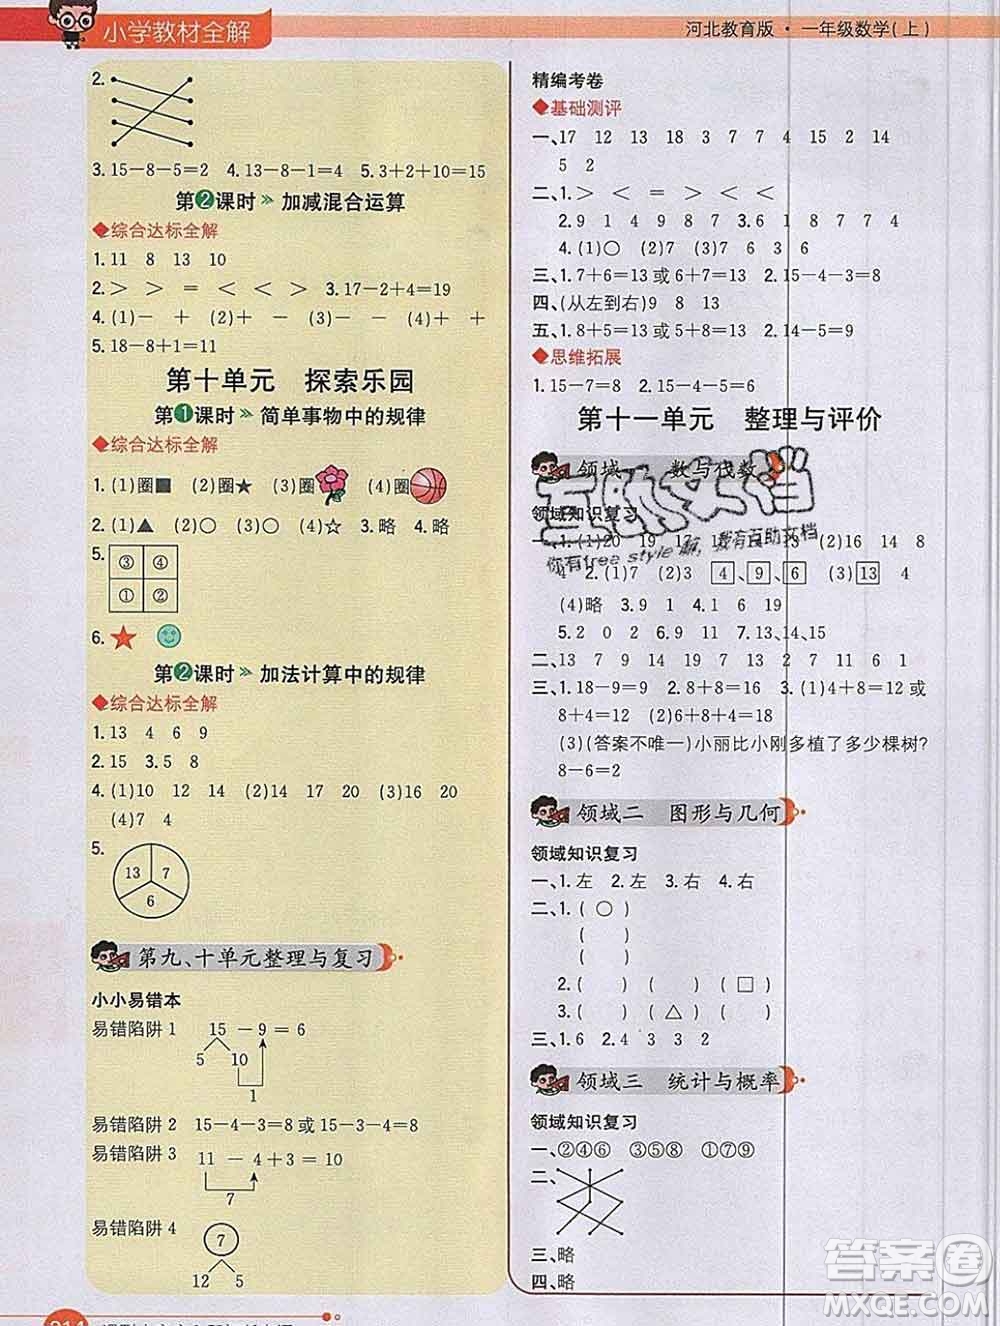 小学教材全解
河北教育版·一年级数学(上)
2.
3. 15－8－5＝2 4. 13－8－1＝4 5. 3＋2＋10＝15
第2课时 » 加减混合运算
◆综合达标全解
1. 11 8 13 10
2. ＞ ＞ ＝ ＜ ＜ ＞ 3. 17－2＋4＝19
4. (1)－ ＋ (2)＋ － (3)－ － (4)＋ ＋
5. 18－8＋1＝11
第十单元 探索乐园
第1课时 » 简单事物中的规律
◆综合达标全解
1. (1)圈■ (2)圈★ (3)圈 (4)圈
2. (1)▲ (2)○ (3)○ (4)☆ 3. 略 4. 略
5. ③ ④
① ②
6. ★
第2课时 » 加法计算中的规律
◆综合达标全解
1. 13 4 6 9
2. 15 3. 5 8
4. (1)10 12 14 (2)14 17 (3)16 20
(4)7 4
5. 13 7
6
第九、十单元整理与复习
小小易错本
易错陷阱 1 15－9＝6
5 10
1
易错陷阱 2 15－4－3＝8或15－3－4＝8
易错陷阱 3 11－4＋3＝10
7
易错陷阱 4 7
12 5
精编考卷
◆基础测评
一、17 12 13 18 3 7 7 4 15 2 14
5 2
二、1. ＞ ＜ ＝ ＞ ＜ ＞
2. 9 1 4 9 8 7 3. 6 1 8 7 7 9
4. (1)○ (2)7 (3)7 6 3 6
三、1. 7＋6＝13或6＋7＝13 2. 15－4－3＝8
四、(从左到右)9 8 13
五、1. 8＋5＝13或5＋8＝13 2. 14－5＝9
◆思维拓展
1. 15－7＝8 2. 15－4－5＝6
第十一单元 整理与评价
领域一 数与代数
互助文档
领域知识复习
你有free style嘛，我有互助文档
一、1. (1)20 19 17 (2)16 14 8
4 2. (1)7 (2)3 4、9、6 (3)13 4
(4)略 3. 9 1 4. 1 6 19
5. 2 0 2 6. 9 7. 13、14、15
二、13 7 9 19 7 13 2 7 11 6 1
三、1. 18－9＝9 2. 9＋8＝17 3. (1)4＋8＝12或
8＋4＝12 (2)6＋8＋4＝18
(3)(答案不唯一)小丽比小刚多植了多少棵树?
8－6＝2
领域二 图形与几何
领域知识复习
一、1. 左 2. 左 3. 右 4. 右
二、1. ( ○ ) ( )
( ) ( )
2. ( ) ( ) (□)
3. ( ) (△) ( )
三、1. 6 2. 4 3 3 2
领域三 统计与概率
领域知识复习
一、②④⑥ ③⑤⑧ ①⑦⑨
二、
三、略
四、略
答案圈
MXQE.COM